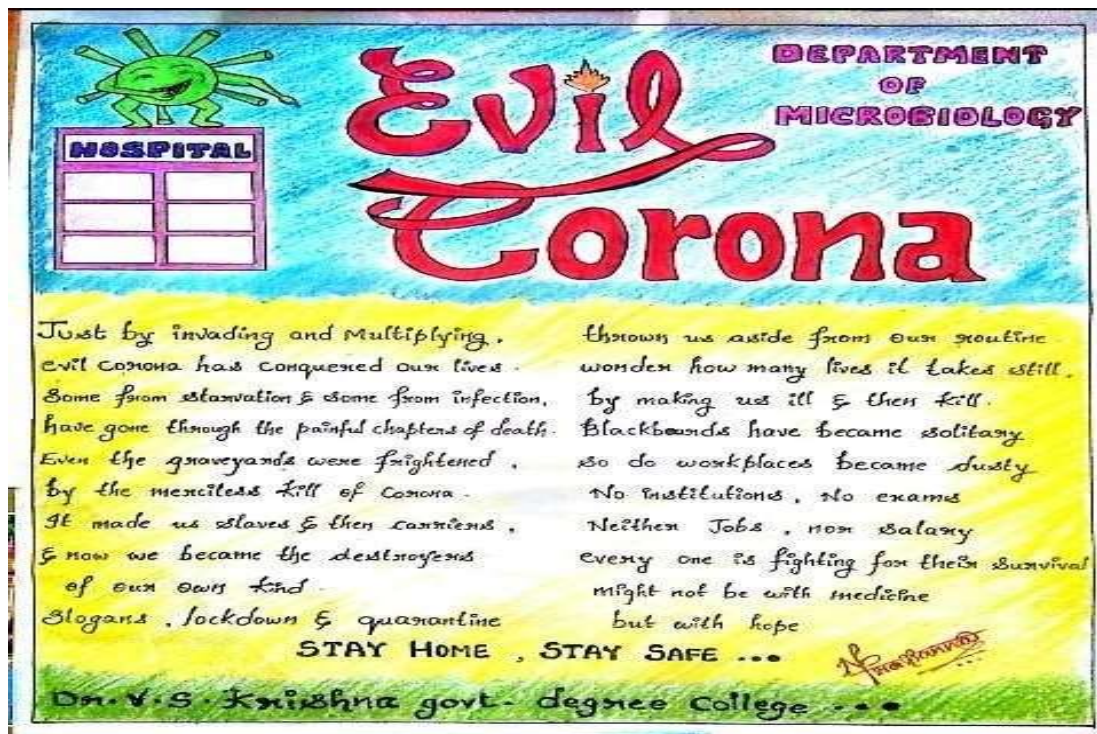 Evil
Corona
DEPARTMENT
OF
MICROBIOLOGY
HOSPITAL
Just by invading and Multiplying,
evil corona has conquered our lives.
Some from starvation & some from infection,
have gone through the painful chapters of death.
Even the graveyards were frightened,
by the merciless kill of Corona.
It made us slaves & then carriers,
& now we became the destroyers
of our own kind.
Slogans, lockdown & quarantine
thrown us aside from our routine
wonder how many lives it takes still,
by making us ill & then kill.
Blackboards have became solitary
so do workplaces became dusty
No institutions, No exams
Neither Jobs, nor salary
every one is fighting for their survival
might not be with medicine
but with hope
STAY HOME, STAY SAFE ...
Dr. V. S. Krishna govt. degree College ...